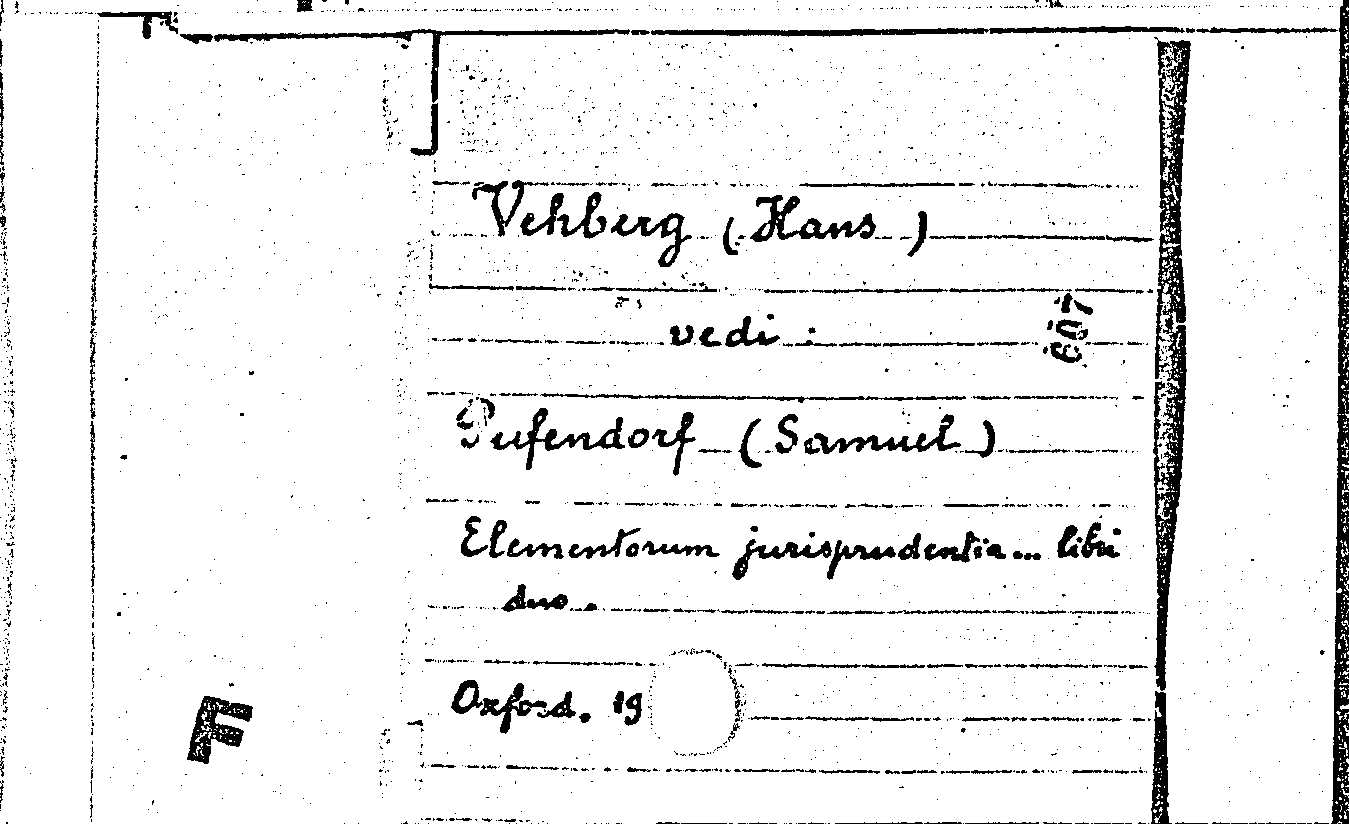 Vehberg (Hans)
vedi :
607
Pufendorf (Samuel)
Elementorum jurisprudentia... libri
duo.
Oxford. 19
F